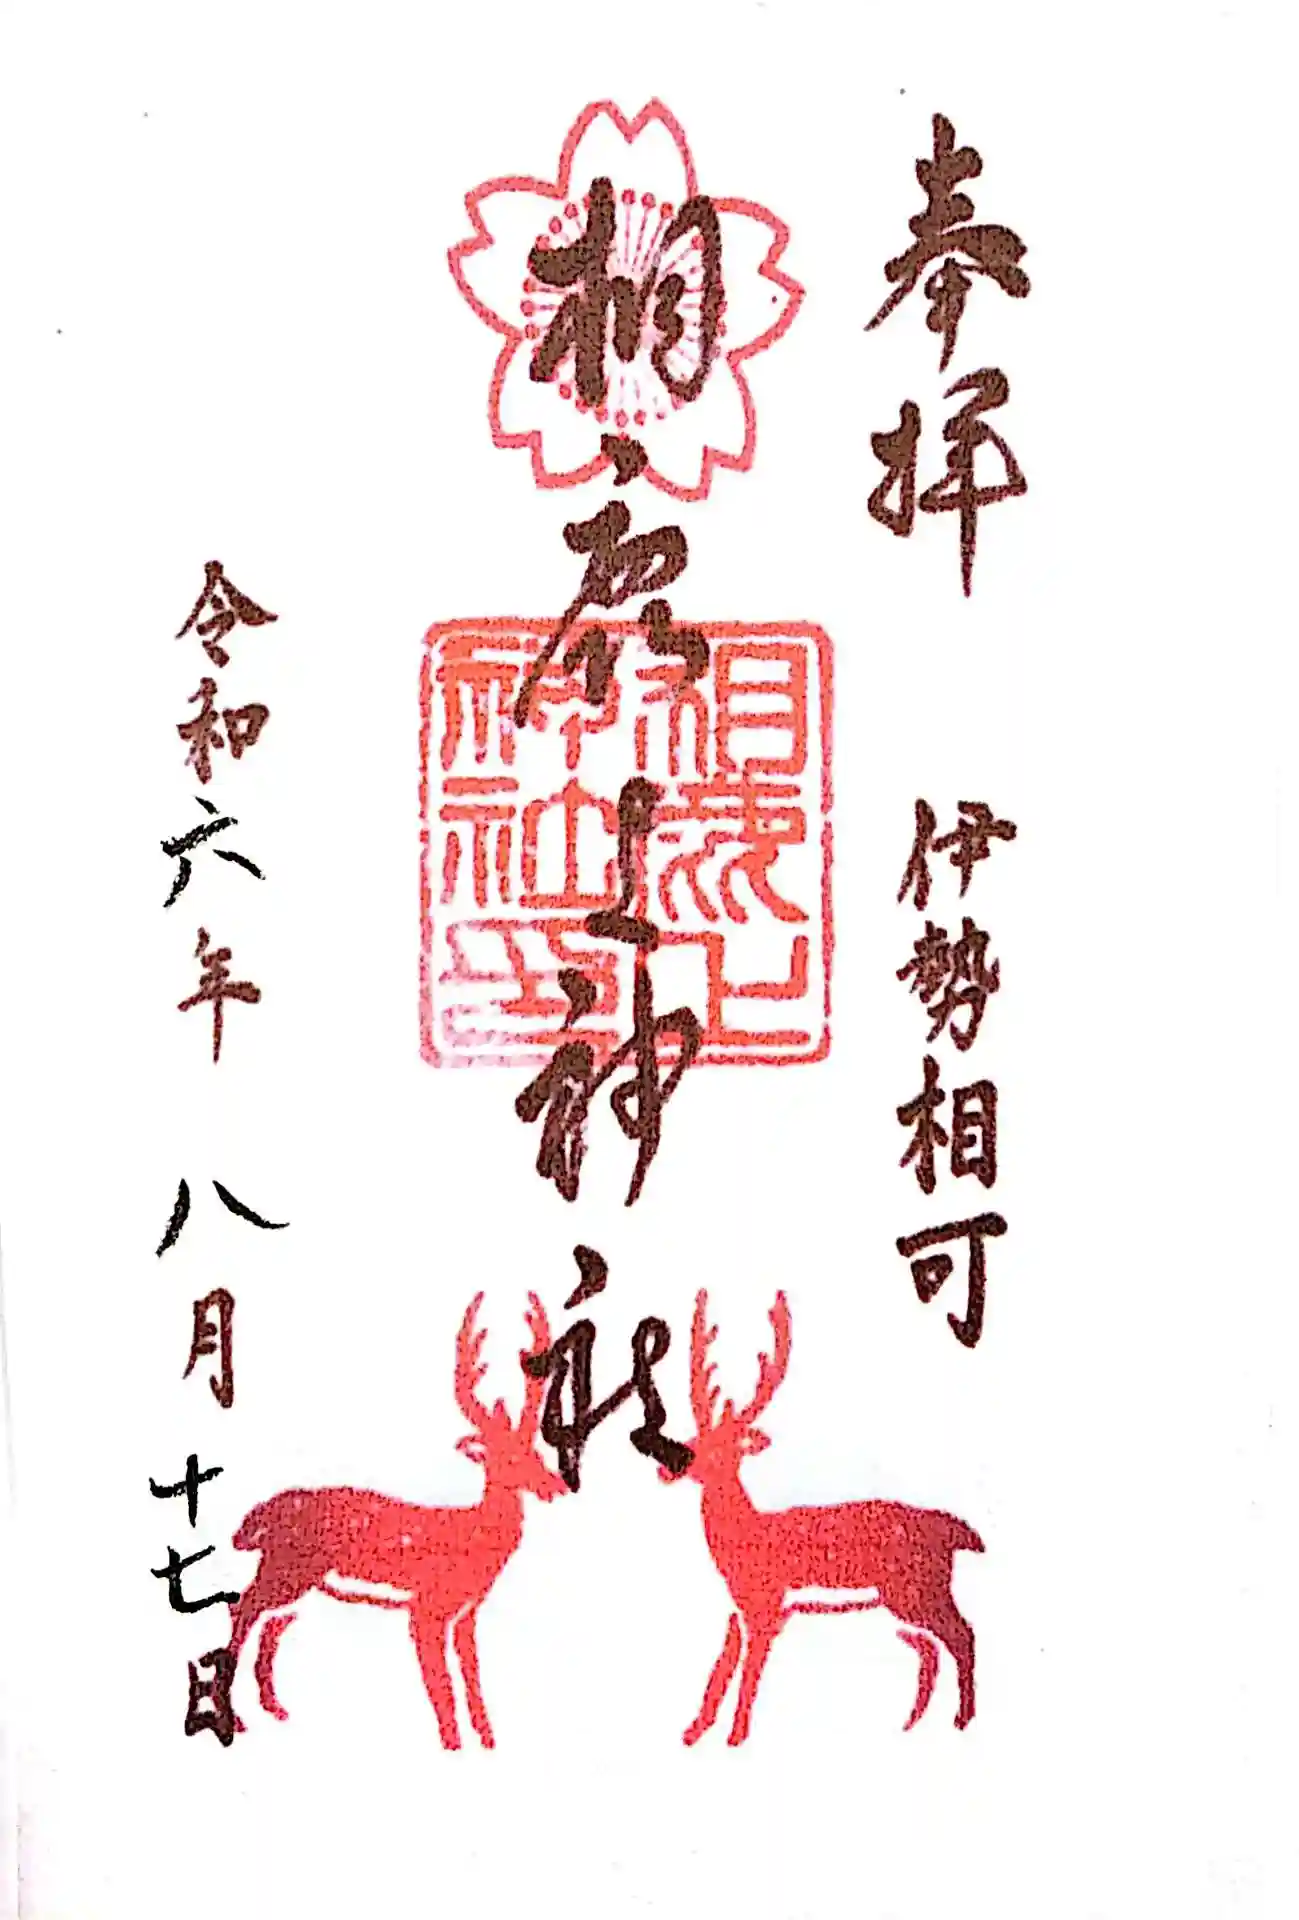 奉拝 伊勢相可
相鹿上神社
相鹿上
神社印
令和六年 八月十七日